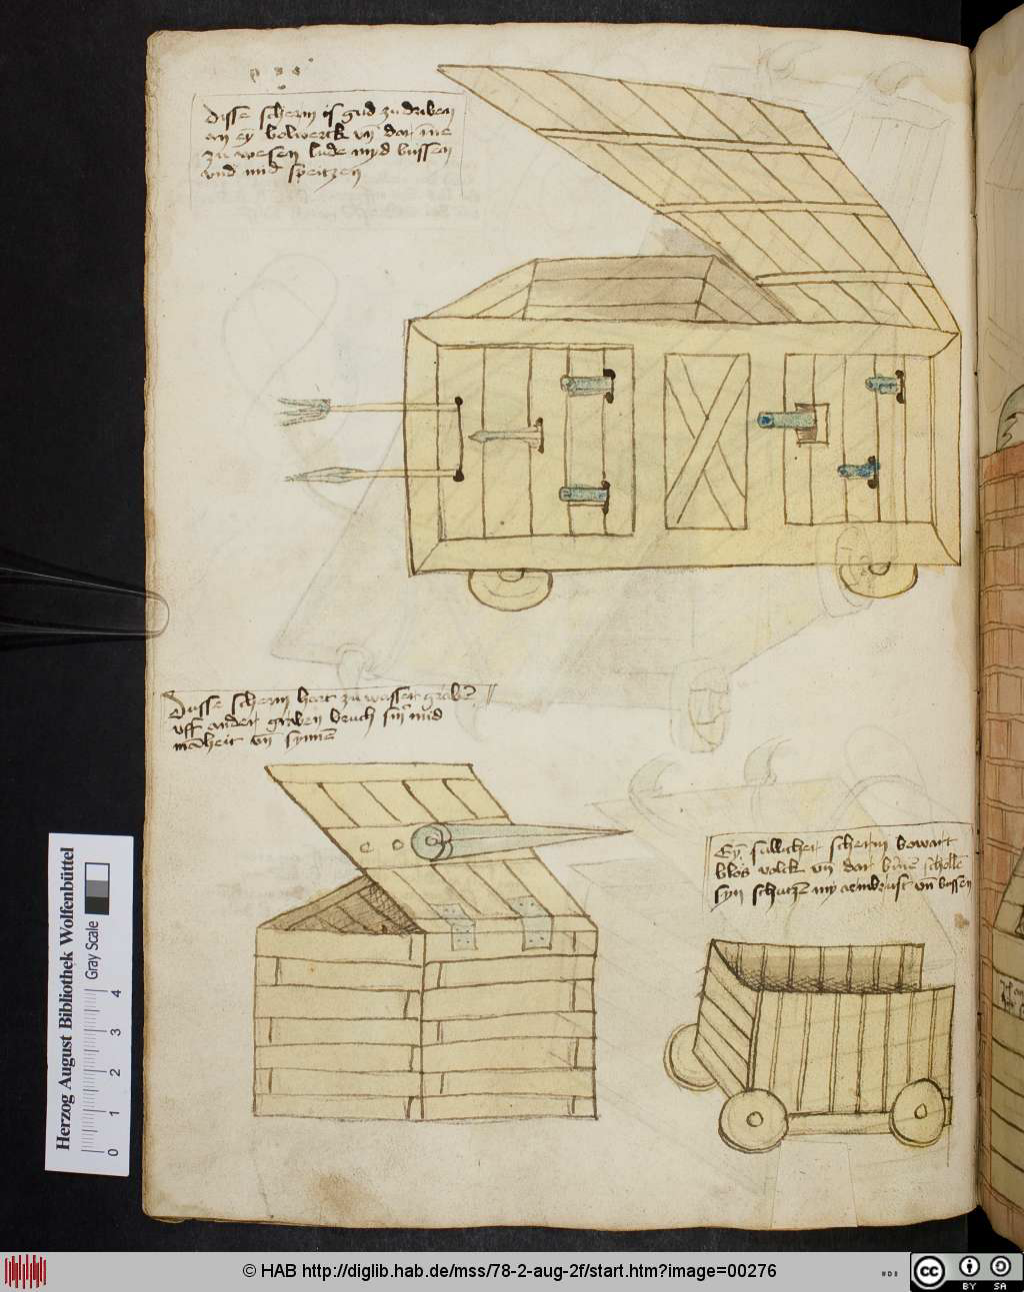 Disse scherm is gud zu driben
an ey̅ bolwerck vn̅ dar ine
zu wesen lude myd bussen
vnd mid speitzen
Dusse scherm hort zu wasser grabe̅
vff ander graben bruch sin mid
ma̅heit vn̅ synne̅
Ey̅ sullicher scherm bewart
blos volck vn̅ dar
syn schutze̅ my armbrust vn̅ bussen
Herzog August Bibliothek Wolfenbüttel
Gray Scale
0 1 2 3 4
© HAB http://diglib.hab.de/mss/78-2-aug-2f/start.htm?image=00276
cc BY SA